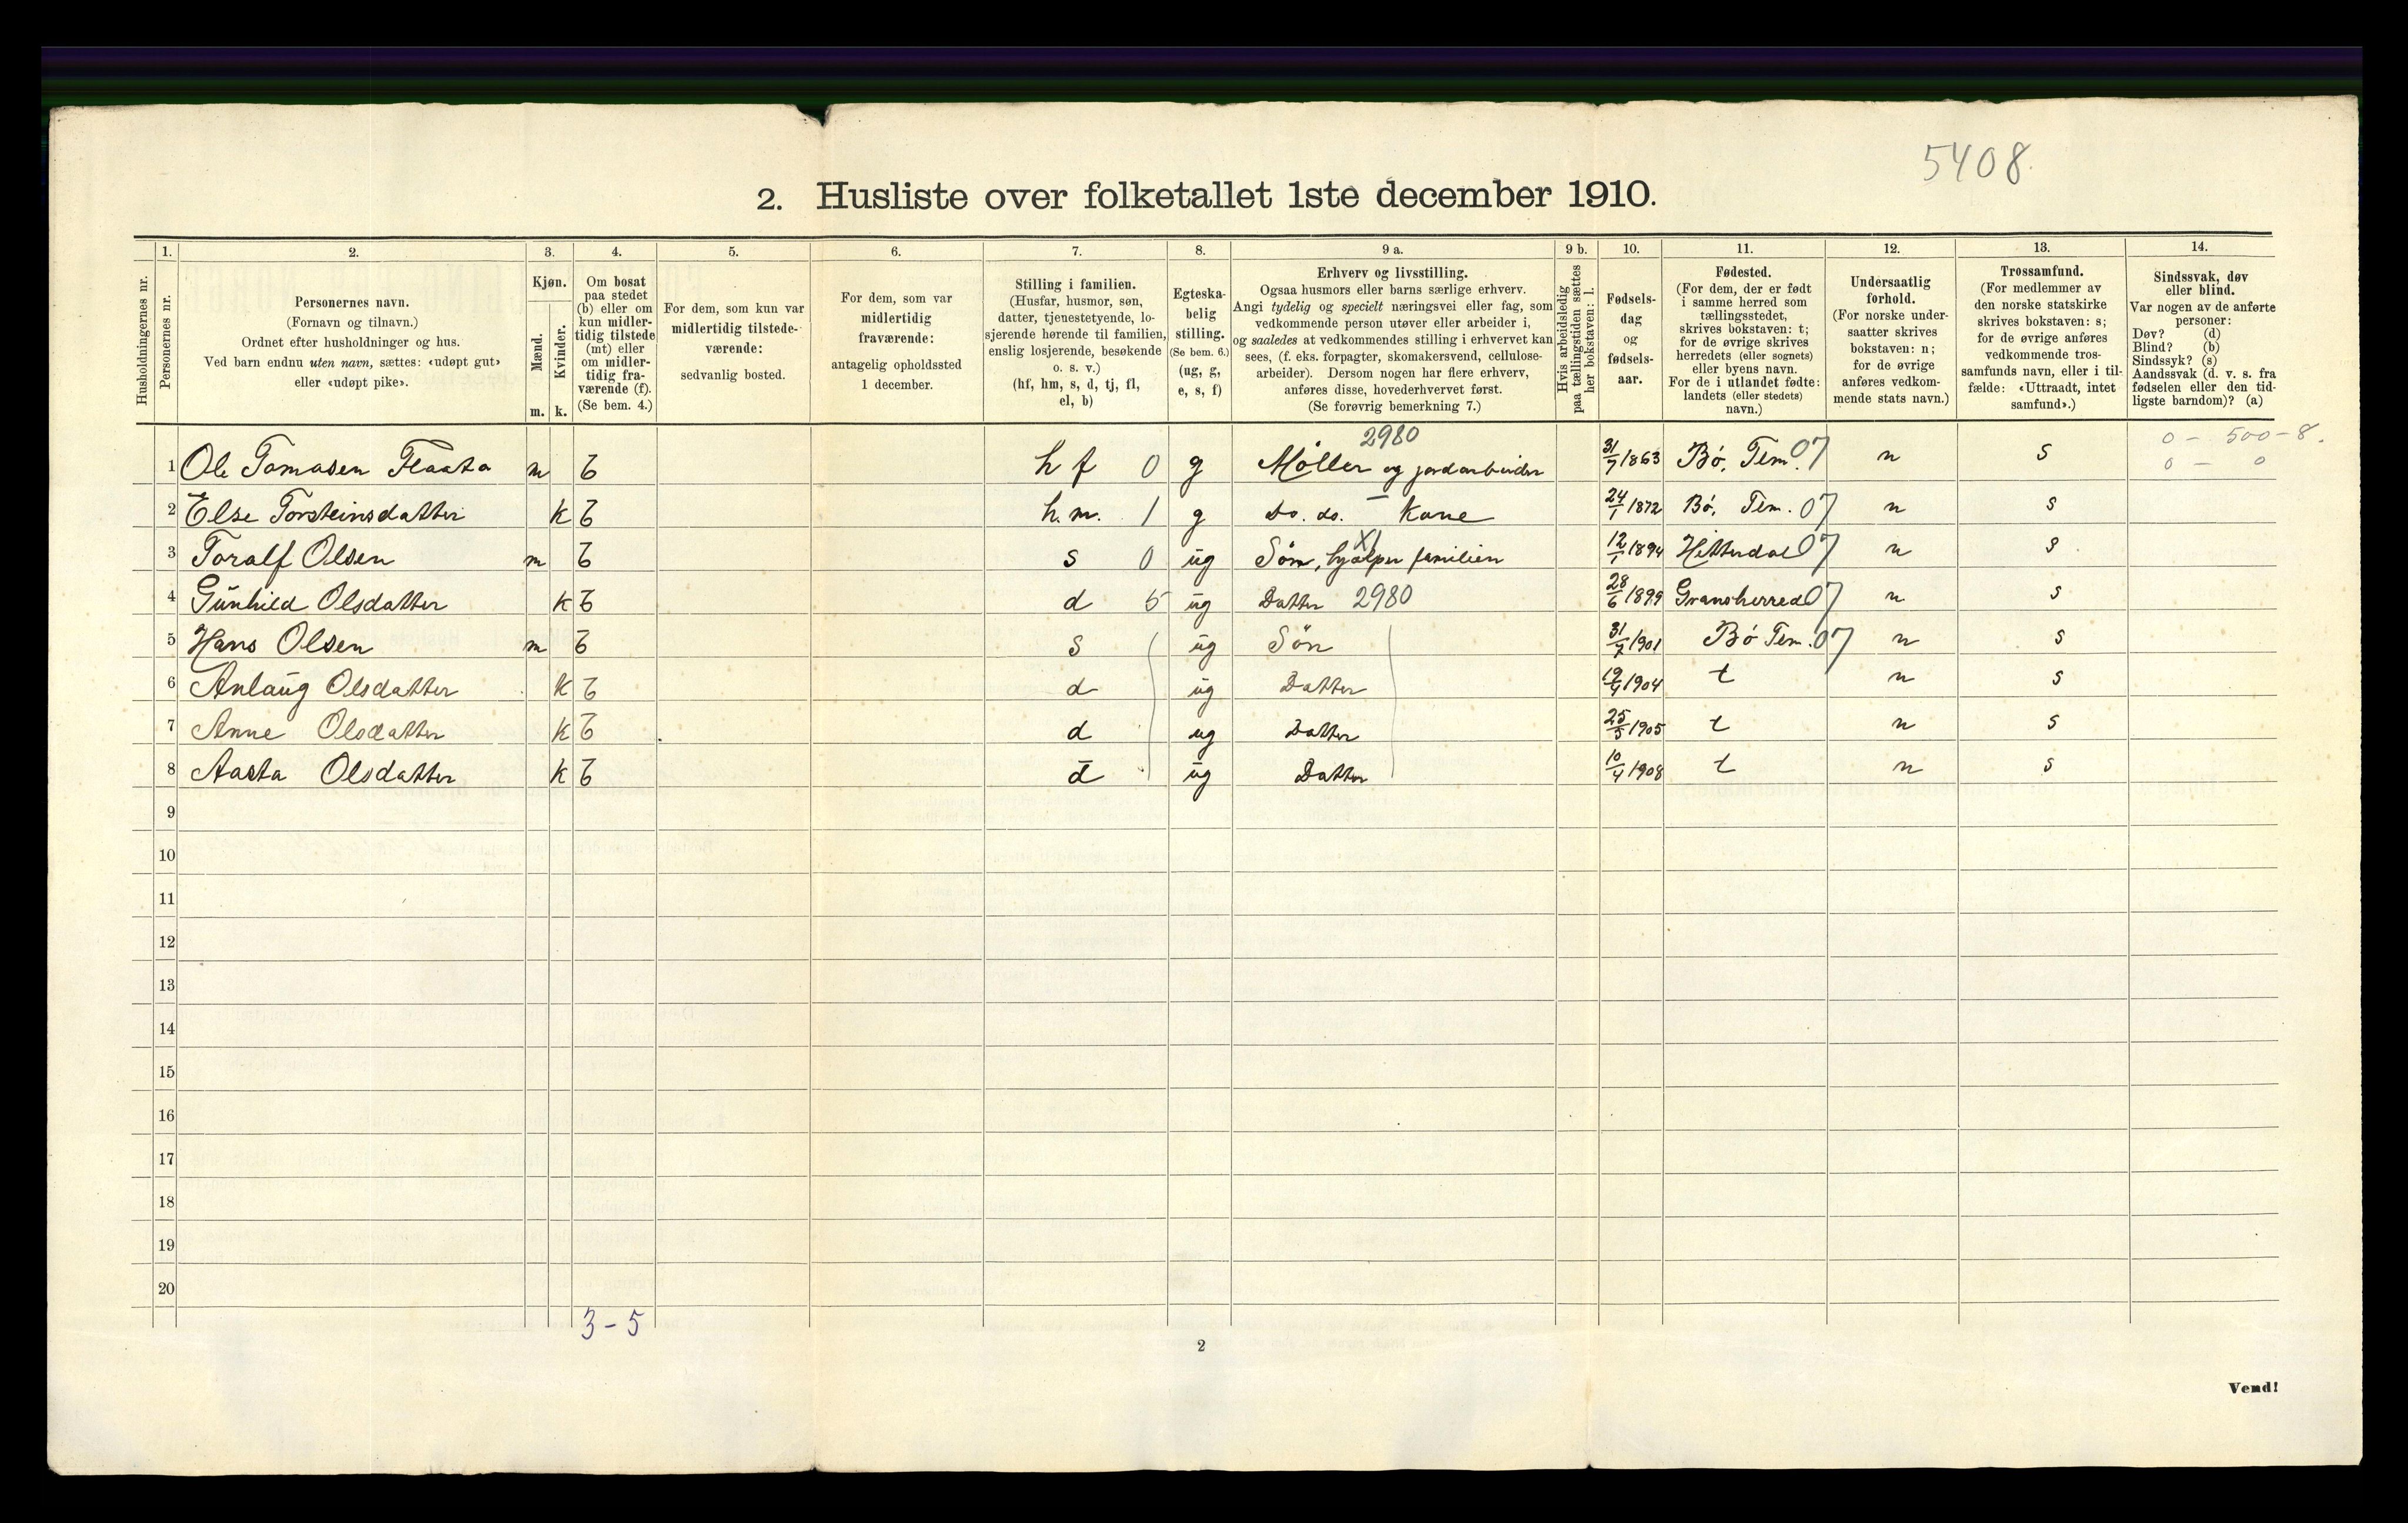 5408.
2. Husliste over folketallet 1ste december 1910.
Husholdningernes nr.
1.
Personernes nr.
2.
Personernes navn.
(Fornavn og tilnavn.)
Ordnet efter husholdninger og hus.
Ved barn endnu uten navn, sættes: «udøpt gut»
eller «udøpt pike».
3.
Kjøn.
Mænd.
Kvinder.
m. k.
4.
Om bosat
paa stedet
(b) eller om
kun midler-
tidig tilstede
(mt) eller
om midler-
tidig fra-
værende (f).
(Se bem. 4.)
5.
For dem, som kun var
midlertidig tilstede-
værende:
sedvanlig bosted.
6.
For dem, som var
midlertidig
fraværende:
antagelig opholdssted
1 december.
7.
Stilling i familien.
(Husfar, husmor, søn,
datter, tjenestetyende, lo-
sjerende hørende til familien,
enslig losjerende, besøkende
o. s. v.)
(hf, hm, s, d, tj, fl,
el, b)
8.
Egteska-
belig
stilling.
(Se bem. 6.)
(ug, g,
e, s, f)
9 a.
Erhverv og livsstilling.
Ogsaa husmors eller barns særlige erhverv.
Angi tydelig og specielt næringsvei eller fag, som
vedkommende person utøver eller arbeider i,
og saaledes at vedkommendes stilling i erhvervet kan
sees, (f. eks. forpagter, skomakersvend, cellulose-
arbeider). Dersom nogen har flere erhverv,
anføres disse, hovederhvervet først.
(Se forøvrig bemerkning 7.)
9 b.
Hvis arbeidsledig
paa tællingstiden sættes
her bokstaven: l.
10.
Fødsels-
dag
og
fødsels-
aar.
11.
Fødested.
(For dem, der er født
i samme herred som
tællingsstedet,
skrives bokstaven: t;
for de øvrige skrives
herredets (eller sognets)
eller byens navn.
For de i utlandet fødte:
landets (eller stedets)
navn.)
12.
Undersaatlig
forhold.
(For norske under-
saatter skrives
bokstaven: n;
for de øvrige
anføres vedkom-
mende stats navn.)
13.
Trossamfund.
(For medlemmer av
den norske statskirke
skrives bokstaven: s;
for de øvrige anføres
vedkommende tros-
samfunds navn, eller i til-
fælde: «Uttraadt, intet
samfund».)
14.
Sindssvak, døv
eller blind.
Var nogen av de anførte
personer:
Døv? (d)
Blind? (b)
Sindssyk? (s)
Aandssvak (d. v. s. fra
fødselen eller den tid-
ligste barndom)? (a)
2980 0 – 500 – 8.
1 Ole Tomasen Flaata m b h f 0 g Møller og jordarbeider 31/7 1863 Bø, Tem. 07 n s 0 – 0
2 Else Torsteinsdatter k b h.m. 1 g do. do. – Kone 24/1 1872 Bø, Tem. 07 n s
3 Toralf Olsen m b s 0 ug Søn, hjælper familien 12/1 1894 Hitterdal 07 n s
4 Gunhild Olsdatter k b d 5 ug Datter 2980 28/6 1899 Gransherred 07 n s
5 Hans Olsen m b s ug Søn 31/7 1901 Bø Tem. 07 n s
6 Anlaug Olsdatter k b d ug Datter 19/4 1904 t n s
7 Anne Olsdatter k b d ug Datter 25/5 1905 t n s
8 Aasta Olsdatter k b d ug Datter 10/4 1908 t n s
9
10
11
12
13
14
15
16
17
18
19
20
3 – 5
2
Vend!